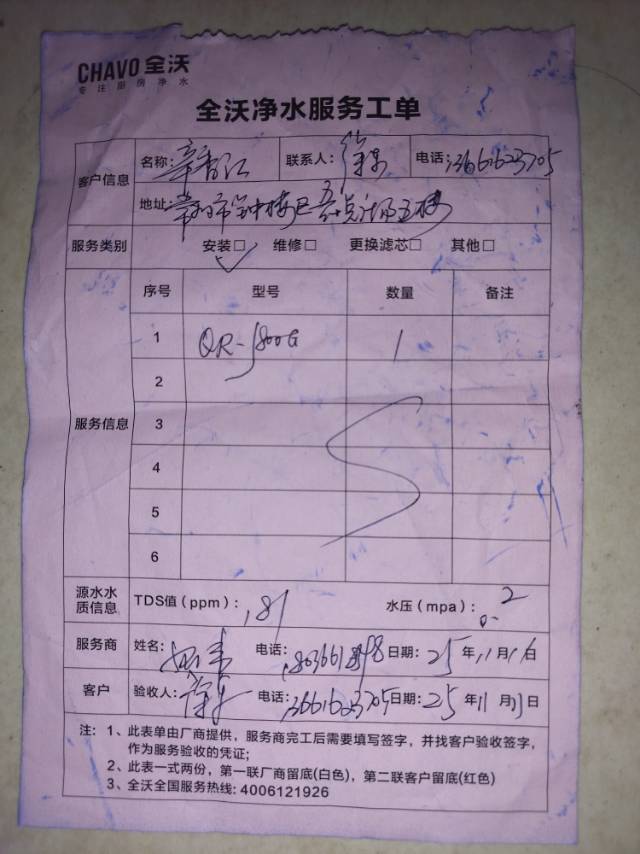 CHAVO 全沃
专注厨房净水
全沃净水服务工单
客户信息
名称: 联系人: 徐 电话: 13661623705
地址: 常州市钟楼区 五楼
服务类别 安装□ ✓ 维修□ 更换滤芯□ 其他□
服务信息
序号 型号 数量 备注
1 QR-J800G 1
2
3
4
5
6
源水水质信息 TDS值(ppm): 181 水压(mpa): 0.2
服务商 姓名: 电话: 日期: 25 年 11 月 16 日
客户 验收人: 徐 电话: 13661623705 日期: 25 年 11 月 日
注: 1、此表单由厂商提供，服务商完工后需要填写签字，并找客户验收签字，
作为服务验收的凭证;
2、此表一式两份，第一联厂商留底(白色)，第二联客户留底(红色)
3、全沃全国服务热线: 4006121926